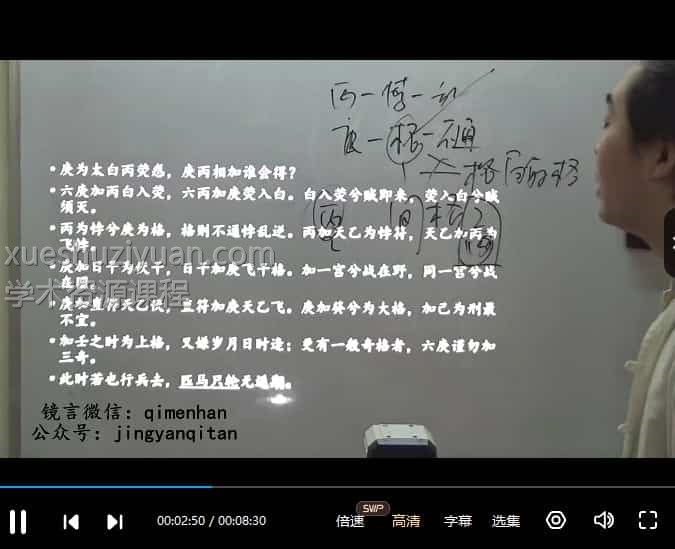 丙一悖一乱
庚一格一不通
• 庚为太白丙荧惑，庚丙相加谁会得？
• 六庚加丙白入荧，六丙加庚荧入白。白入荧兮贼即来，荧入白兮贼
须灭。
• 丙为悖兮庚为格，格则不通悖乱逆。丙加天乙为悖符，天乙加丙为
飞悖。
• 庚加日干为伏干，日干加庚飞干格。加一宫兮战在野，同一宫兮战
在国。
• 庚加直符天乙伏，直符加庚天乙飞。庚加癸兮为大格，加己为刑最
不宜。
• 加壬之时为上格，又嫌岁月日时逢；更有一般奇格者，六庚谨勿加
三奇。
• 此时若也行兵去，匹马只轮无
xueshuziyuan.com
学术资源课程
镜言微信：qimenhan
公众号：jingyanqitan
00:02:50 / 00:08:30
倍速
SVIP
高清
字幕
选集